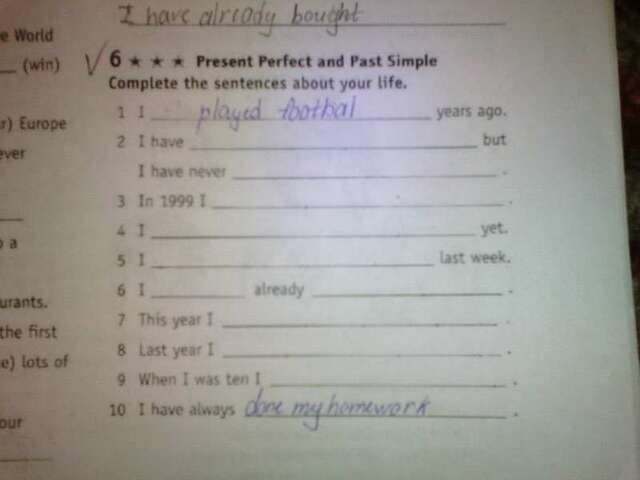 I have already bought
e World
(win)
6 ★ ★ ★ Present Perfect and Past Simple
Complete the sentences about your life.
1 I played footbal years ago.
r) Europe
ever
2 I have but
I have never .
3 In 1999 I .
4 I yet.
a
5 I last week.
6 I already .
urants.
the first
7 This year I .
e) lots of
8 Last year I .
9 When I was ten I .
10 I have always done my homework .
our